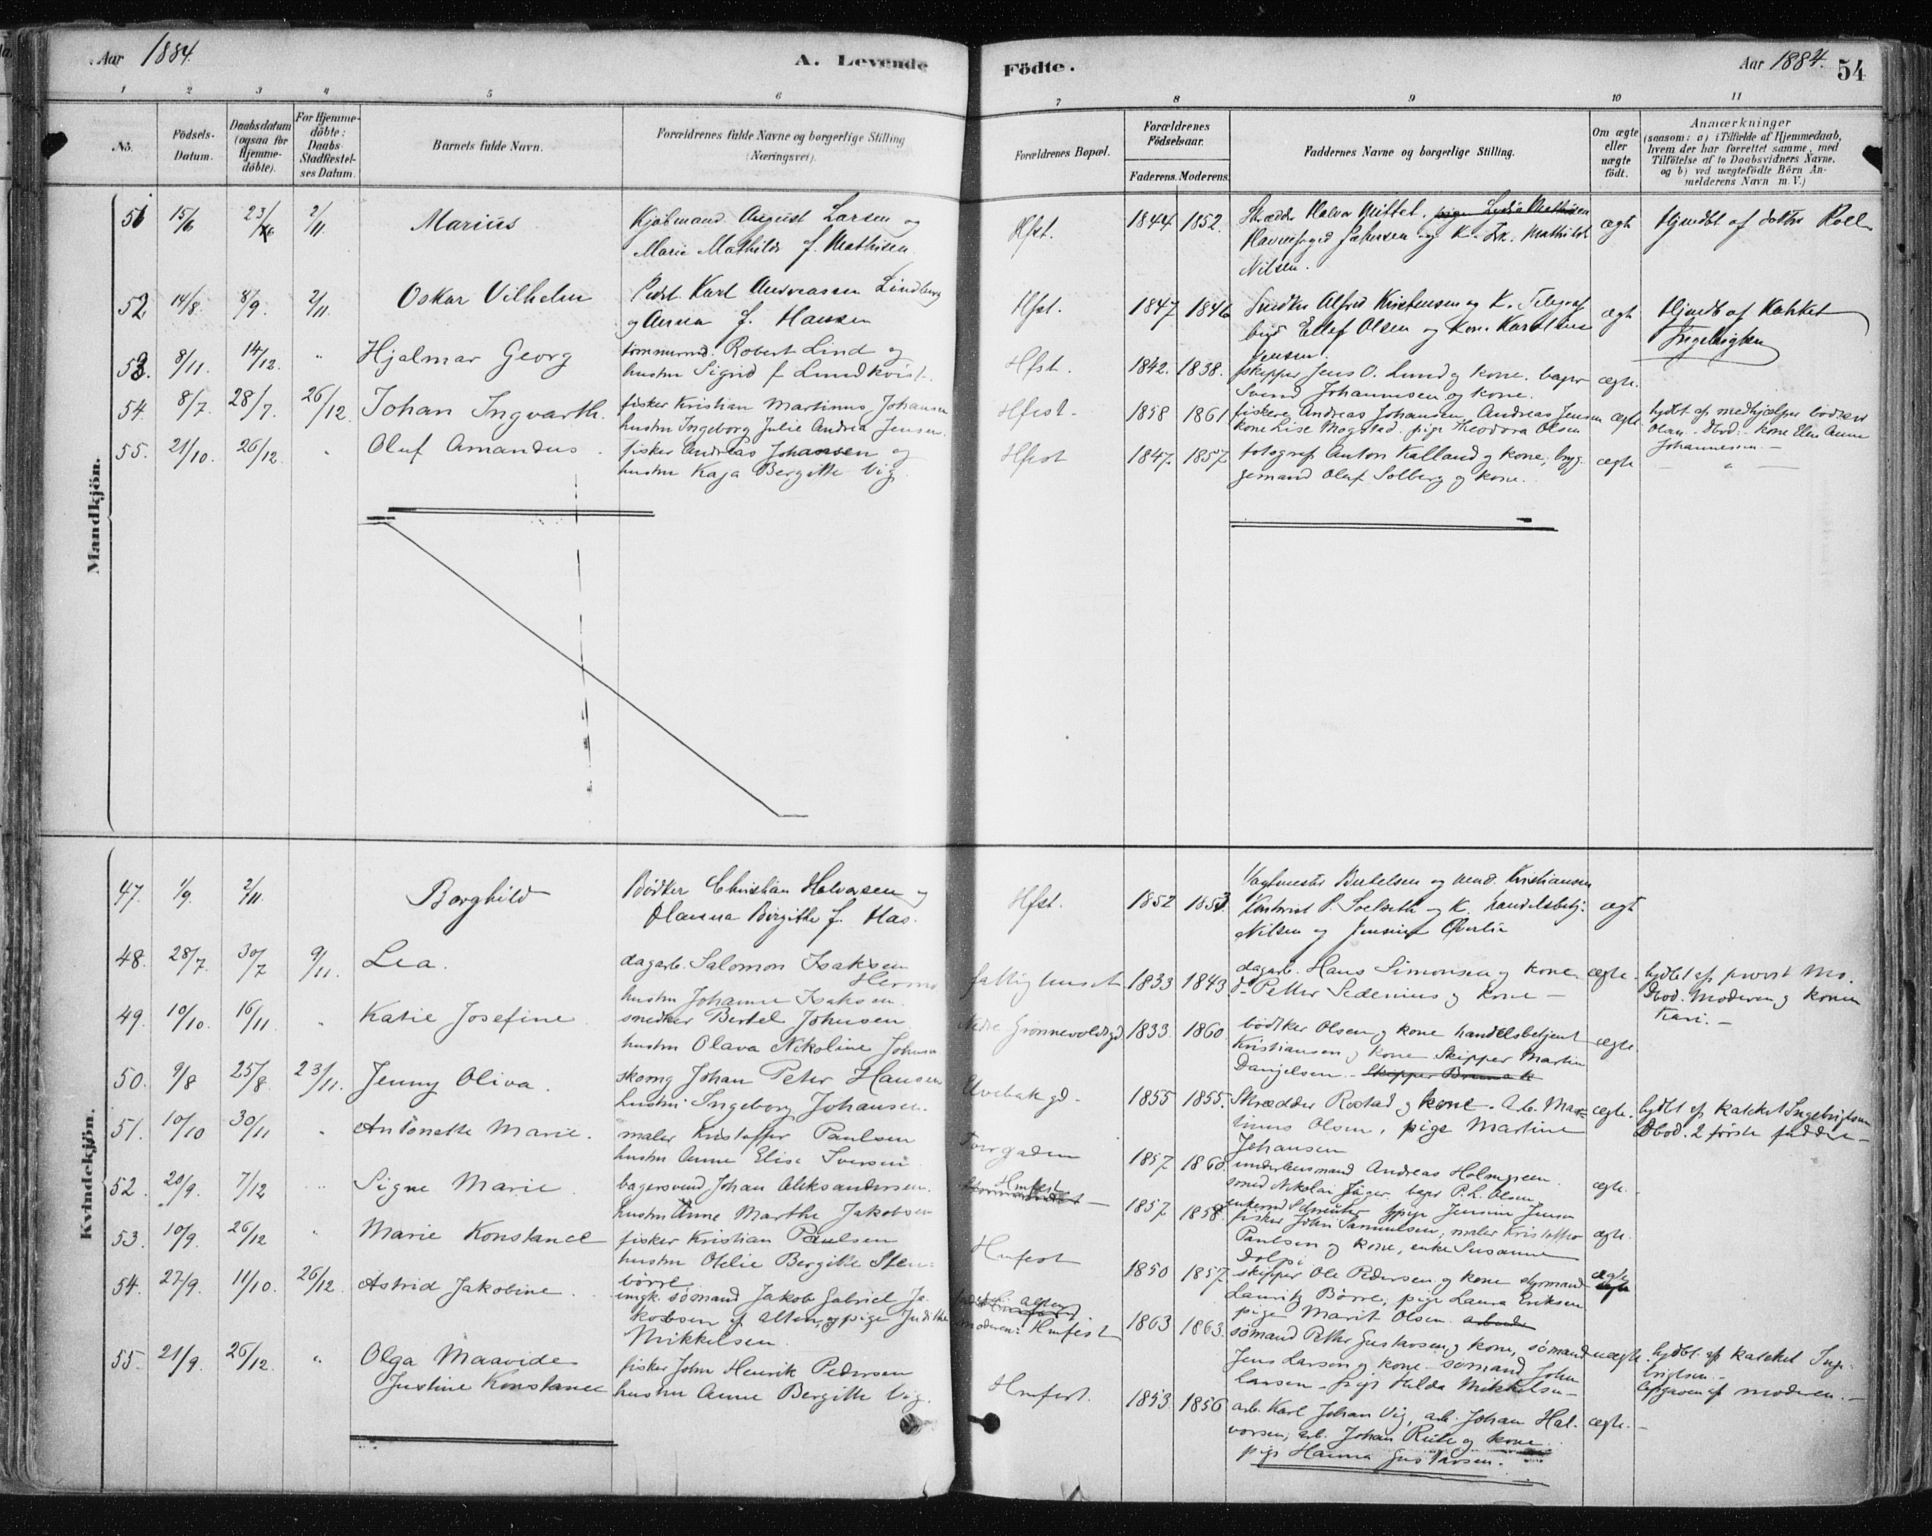 Aar 1884.
A. Levende
Födte.
Aar 1884.
54
1 2 3 4 5 6 7 8 9 10 11
No.
Födsels-Datum.
Daabsdatum (ogsaa for Hjemmedöbte).
For Hjemmedöbte: Daabs Stadfæstelses Datum.
Barnets fulde Navn.
Forældrenes fulde Navne og borgerlige Stilling (Næringsvei).
Forældrenes Bopæl.
Forældrenes Födselsaar.
Faderens. Moderens.
Faddernes Navne og borgerlige Stilling.
Om ægte eller uægte födt.
Anmærkninger
(saasom: a) i Tilfælde af Hjemmedaab, hvem der har forrettet samme, med Tilföielse af to Daabsvidners Navne, og b) ved uægtefödte Börn Anmelderens Navn m. V.)
Mandkjön.
51 15/6 23/ 2/11 Marius
August Larsen og
Marie Mathilde f. Mathisen
Hfst. 1844 1852.
Halvor Mittet. pige Lydia Mathisen
og K. Mathilde
Nilsen.
ægte
Hjmdbt af doktor Roll
52. 14/8 8/9 2/11 Oskar Vilhelm
Karl Andreassen Lindberg
og Anna f. Hansen
Hfst. 1847. 1846
Snedker Alfred Kristensen og K. Telegraf
bud Ellef Olsen og Kone Karoline
Jensen.
ægte
Hjmdbt af Katket
Ingebrigtsen
53. 8/11. 14/12. " Hjalmar Georg
tømmermd. Robert Lind og
hustru Sigrid f. Lundkvist.
Hfst. 1842. 1838.
skipper Jens O. Lund og kone. bager
Svend Johannesen og kone.
ægte.
54. 8/7 28/7. 26/12. Johan Ingvarth.
fisker Kristian Martinus Johansen
hustru Ingeborg Julie Andrea Jensen.
Hfest. 1858 1861
fiskere Andreas Johansen, Andreas Jensen
kone Lise Mogstad. pige Theodora Olsen
ægte.
hjdbt. af medhjælper
Olsen. Dbod. kone Elen Anne
Johannessen.
55. 21/10. 26/12. " Oluf Amandus.
fisker Andreas Johansen og
hustru Kaja Bergitte Vig.
Hfest 1847. 1857.
fotograf Anton Kalland og kone, bryg-
gemand Oluf Solberg og kone.
ægte
Kvindekjön.
47. 1/9. 2/11. Borghild
Bødker Christian Halvorsen og
Hanna Birgitte f. Has.
Hfst. 1852 1853
Vagtmester Bertelsen og
P. og K. handelsbetj.
Nilsen og Jensine
ægt
48. 28/7. 30/7 9/11. Lea.
dagarb. Salomon Isaksen
hustru Johanne Isaksen.
fattighuset 1833 1843
dagarb. Hans Simonsen og kone
do Petter Sedenius og kone —
ægte.
hjdbt af provst Mo.
Dbod. Moderen og konen
Kari. —
49. 10/10. 16/11. " Katie Josefine
snedker Bertel Johnsen
hustru Olava Nikoline Johnsen
Nedre Grønnevoldsgd 1833 1860.
bødker Olsen og kone handelsbetjent
Kristiansen og kone Skipper Martin
Danjelsen.
ægte.
50. 9/8 25/8. 23/11. Jenny Oliva.
skomg Johan Peter Hansen
hustru Ingeborg Johansen.
Elvebakgd. 1855 1855.
Skrædder Rostad og kone. Arb. Mar-
tinus Olsen, pige Martine
Johansen
ægte.
hjdbt af katket Ingebrigtsen
Dbod. 2 første faddere —
51. 10/10 30/11 " Antonette Marie.
maler Kristoffer Paulsen
hustru Anne Elise Iversen
Torvgaden 1857. 1860.
underlensmand Andreas Holmgreen.
smed Nikolai Jäger, bager P. L. Olsen,
pige Jensine Jensen
ægte.
52. 20/9. 7/12 Signe Marie.
bagersvend Johan Aleksandersen.
hustru Anne Marthe Jakobsen
Hmfest 1857. 1858.
fisker John Samuelsen, maler Kristoffer
Paulsen og kone, enke Susanne
ægte.
53. 10/9. 26/12 " Marie Konstance
fisker Kristian Paulsen
hustru Otelie Bergitte Sten-
børre.
Hmfest 1850 1857.
skipper Ole Pedersen og kone styrmand
Lauritz Børre, pige Laura Eriksen
pige Marit Olsen.
ægte
54. 27/9. 11/10. 26/12. Astrid Jakobine.
ungk. sømand Jakob Gabriel Ja-
kobsen af Alten, og pige Judithe
Mikkelsen.
Alten
moderen: Hmfest 1863 1863.
sømand Petter Gustavsen og kone, sømand
Jens Larsen og kone – sømand John
Larsen – pige Hilda Mikkelsen –
uægte.
hjdbt. af katket Inge-
brigtsen. –
Opgaven af moderen. –
55. 21/9. 26/12. " Olga Maavide
Justine Konstance
fisker John Henrik Pedersen
hustru Anne Bergitte Vig.
Hmfest. 1853. 1856
arb. Karl Johan Vig, arb. Johan Hal-
vorsen, arb. Johan og kone
pige Hanna Gustavsen.
ægte.